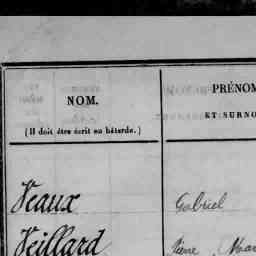 NOM.
PRÉNOM
(Il doit être écrit en bâtarde.)
ET SURNO
Veaux
Gabriel
Veillard
Pierre Mar